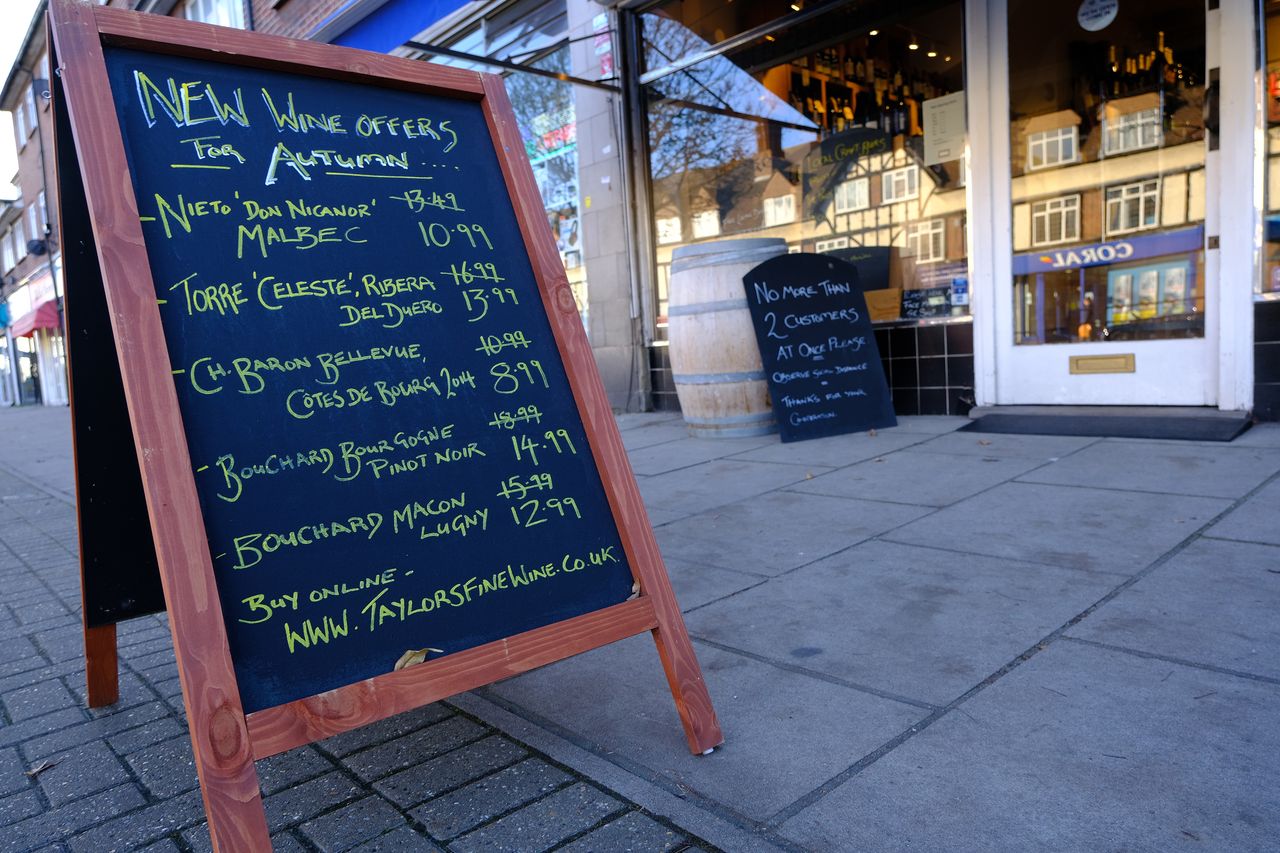 NEW WINE OFFERS
FOR AUTUMN ....
- NIETO 'DON NICANOR' 13.49
MALBEC 10.99
- TORRE 'CELESTE', RIBERA 16.99
DEL DUERO 13.99
- CH. BARON BELLEVUE, 10.99
CÔTES DE BOURG 2014 8.99
- BOUCHARD BOURGOGNE 18.99
PINOT NOIR 14.99
- BOUCHARD MACON 15.99
LUGNY 12.99
BUY ONLINE -
WWW.TAYLORSFINEWINE.CO.UK.
LOCAL CRAFT BEERS
NO MORE THAN
2 CUSTOMERS
AT ONCE PLEASE
OBSERVE SOCIAL DISTANCE
THANKS FOR YOUR
COOPERATION.
CORAL